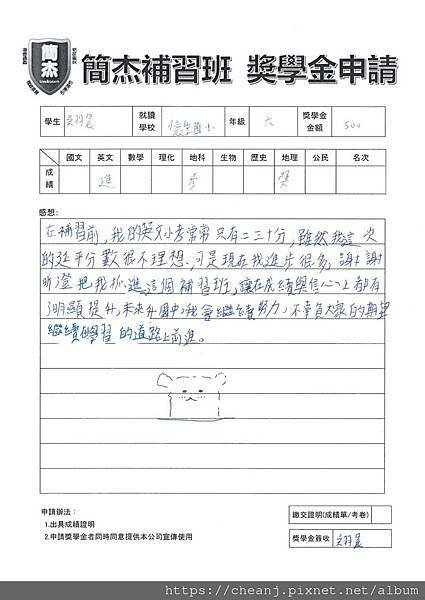 簡杰
簡杰補習班 獎學金申請
學生 就讀學校 國小 年級 六 獎學金金額 500
國文 英文 數學 理化 地科 生物 歷史 地理 公民 名次
成績 進 步 獎
感想:
在補習前,我的英文小考常常只有二三十分,雖然我這次
的 平分數很不理想,可是現在我進步很多,謝謝
昕澄把我抓進這個補習班,讓在成績與信心上都有
明顯提升,未來升國中,我會繼續努力,不辜負大家的期望
繼續學習的道路上前進。
申請辦法:
1.出具成績證明
2.申請獎學金者同時同意提供本公司宣傳使用
繳交證明(成績單/考卷)
獎學金簽收
https://cheanj.pixnet.net/album